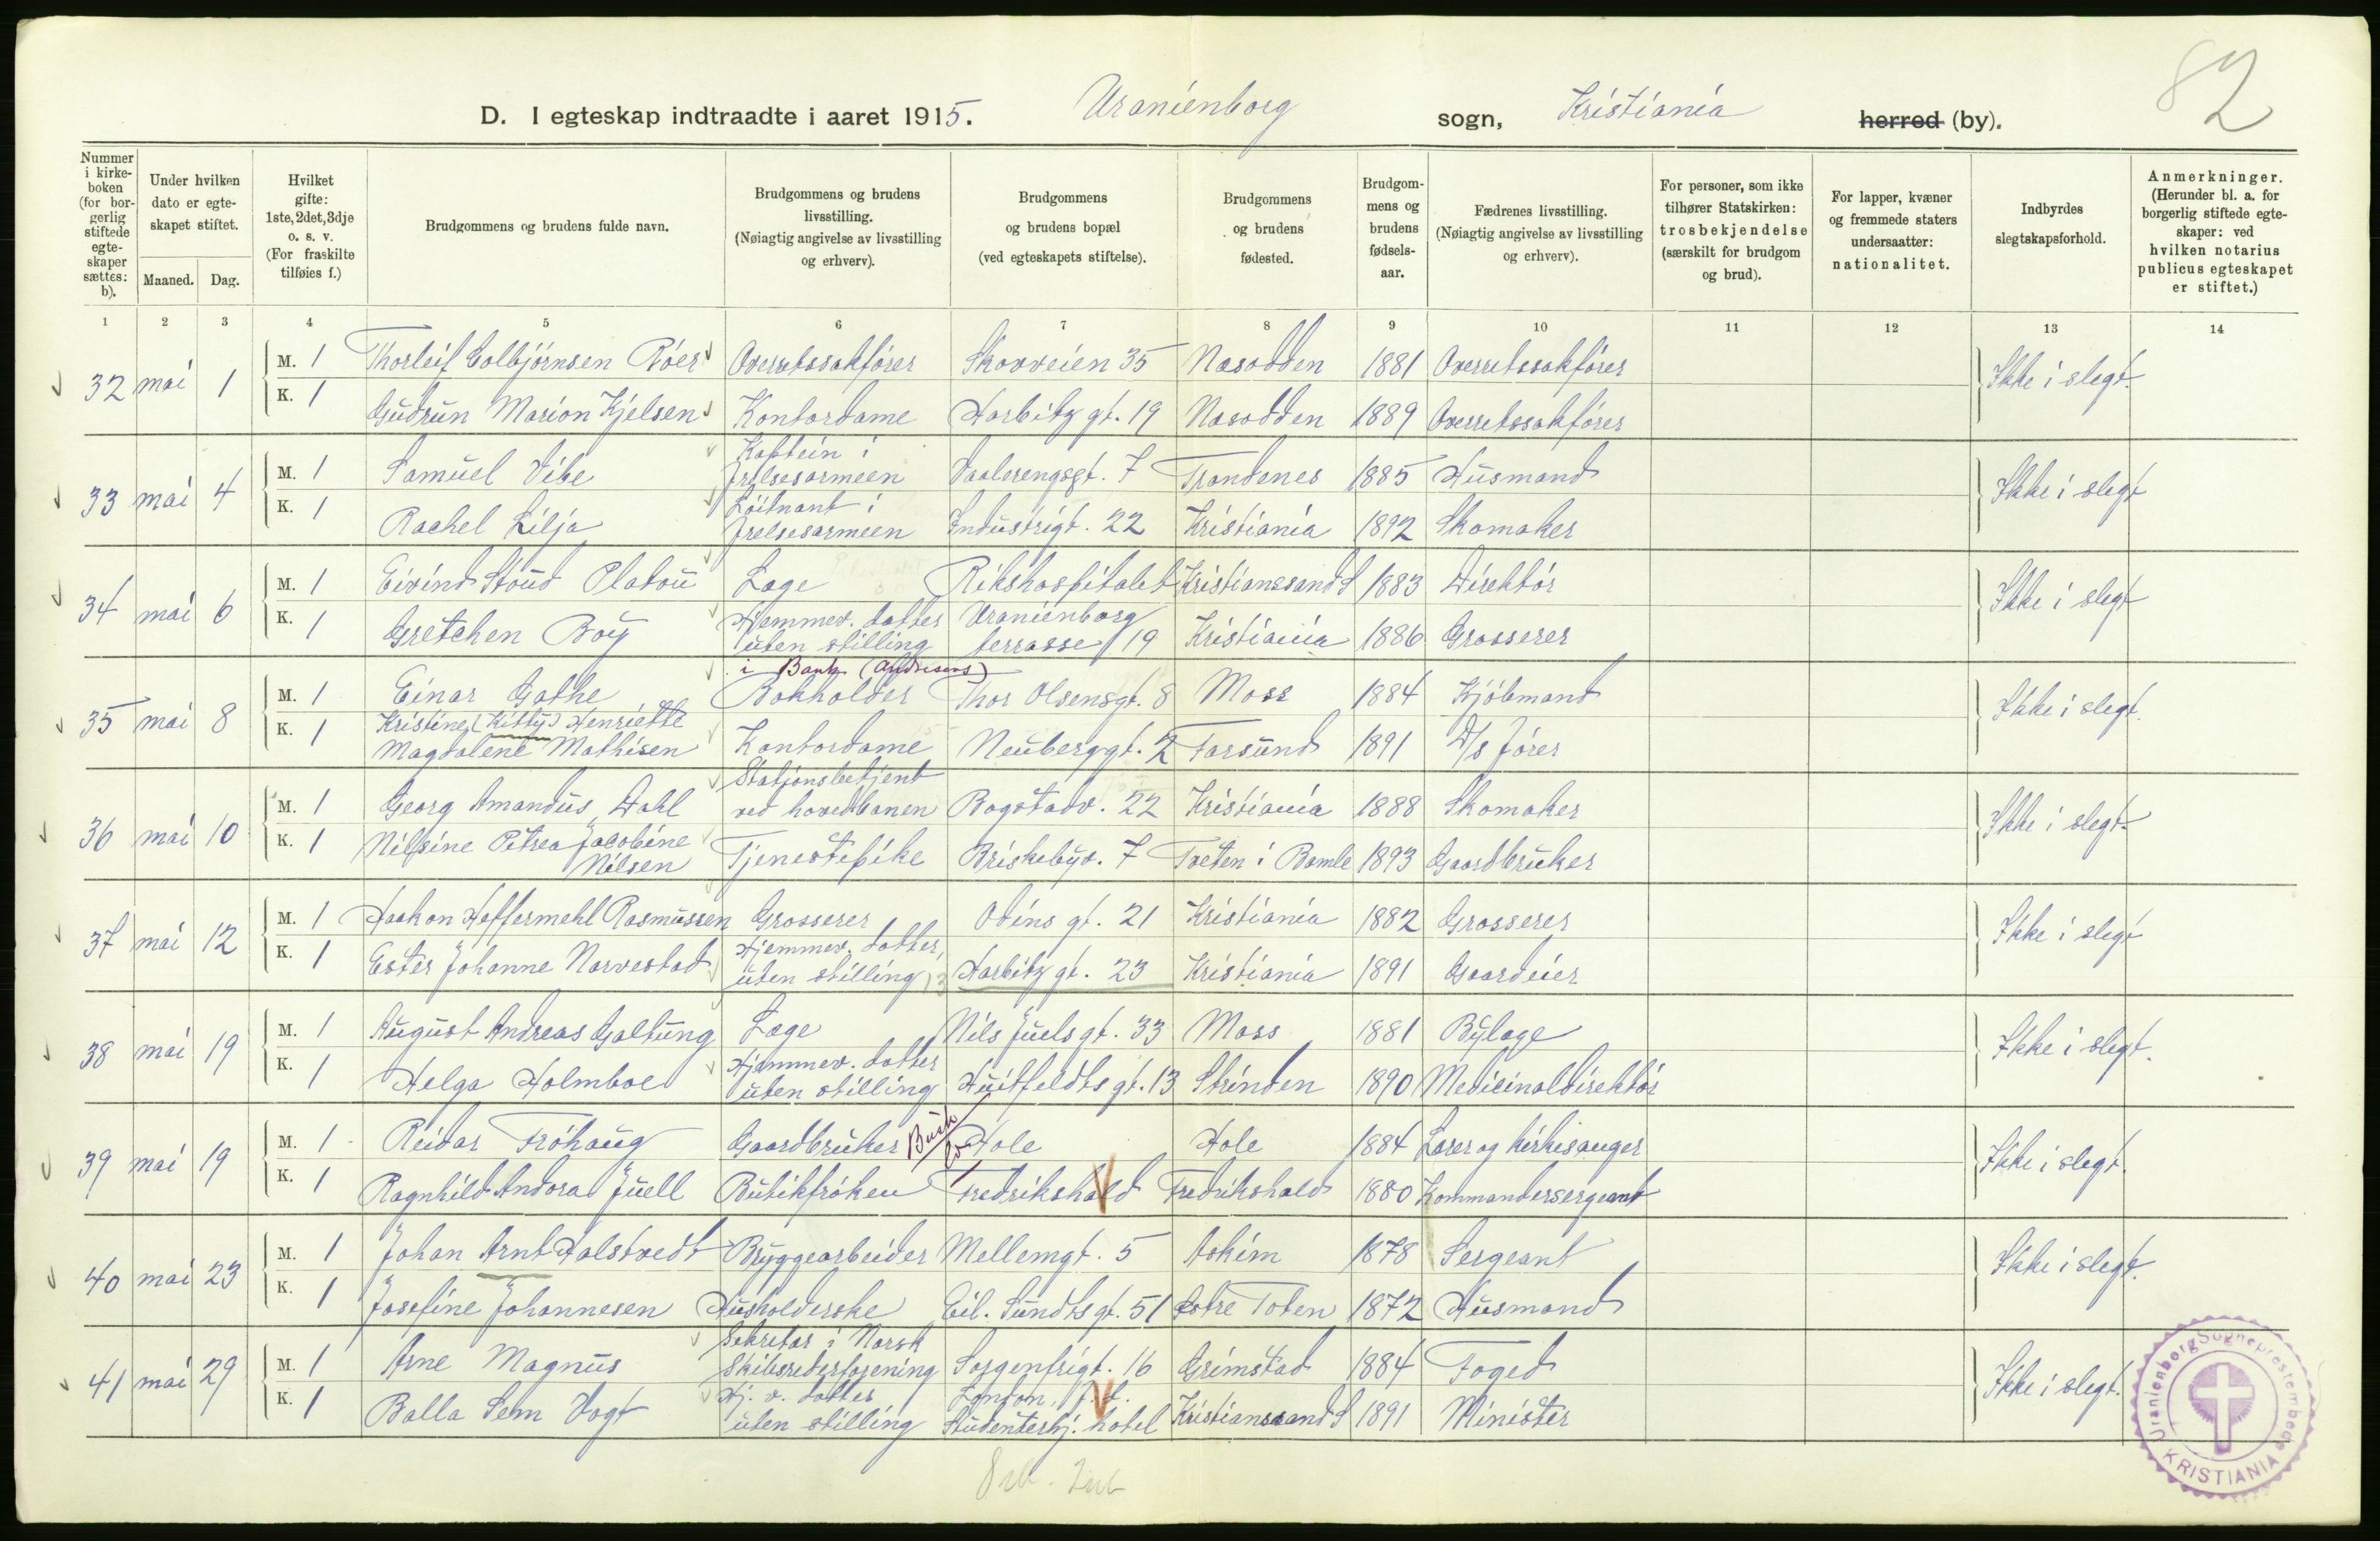 82
D. I egteskap indtraadte i aaret 1915. Uranienborg sogn, Kristiania herred (by).
Nummer i kirkeboken (for borgerlig stiftede egteskaper sættes: b).
Under hvilken dato er egteskapet stiftet.
Maaned. Dag.
Hvilket gifte: 1ste, 2det, 3dje o. s. v. (For fraskilte tilføies f.)
Brudgommens og brudens fulde navn.
Brudgommens og brudens livsstilling. (Nøiagtig angivelse av livsstilling og erhverv).
Brudgommens og brudens bopæl (ved egteskapets stiftelse).
Brudgommens og brudens fødested.
Brudgommens og brudens fødselsaar.
Fædrenes livsstilling. (Nøiagtig angivelse av livsstilling og erhverv).
For personer, som ikke tilhører Statskirken: trosbekjendelse (særskilt for brudgom og brud).
For lapper, kvæner og fremmede staters undersaatter: nationalitet.
Indbyrdes slegtskapsforhold.
Anmerkninger. (Herunder bl. a. for borgerlig stiftede egteskaper: ved hvilken notarius publicus egteskapet er stiftet.)
1 2 3 4 5 6 7 8 9 10 11 12 13 14
32 mai 1 M. 1 Thorleif Colbjørnsen Röer Overretssakfører Skovveien 35 Næsodden 1881 Overretssakfører Ikke i slegt.
K. 1 Gudrun Marion Kjelsen Kontordame Harbitz gt. 19 Næsodden 1889 Overretssakfører
33 mai 4 M. 1 Samuel Vibe Kaptein i Frelsesarmeen Vaalerengsgt. 7 Trondenes 1885 Husmand Ikke i slegt
K. 1 Rachel Lilja Löitnant i Frelsesarmeen Industrigt. 22 Kristiania 1892 Skomaker
34 mai 6 M. 1 Eivind Stoud Platou Læge Rikshospitalet Kristianssand S 1883 Direktör Ikke i slegt
K. 1 Gretchen Boy Hjemmev. datter uten stilling Uranienborg terrasse 19 Kristiania 1886 Grosserer
35 mai 8 M. 1 Einar Gathe i Bank (Andresens) Bokholder Thor Olsensgt. 8 Moss 1884 Kjöbmand Ikke i slegt.
K. 1 Kristine (Kitty) Henriette Magdalene Mathisen Kontordame Neuberggt. 2 Farsund 1891 D/s förer
36 mai 10 M. 1 Georg Amandus Dahl Stationsbetjent ved hovedbanen Bogstadv. 22 Kristiania 1888 Skomaker Ikke i slegt.
K. 1 Nilsine Petrea Jacobine Nilsen Tjenestepike Briskebyv. 7 Tveten i Bamle 1893 Gaardbruker
37 mai 12 M. 1 Haakon Haffermehl Rasmussen Grosserer Odins gt. 21 Kristiania 1882 Grosserer Ikke i slegt
K. 1 Ester Johanne Narvestad Hjemmev. datter, uten stilling Harbitz gt. 23 Kristiania 1891 Gaardeier
38 mai 19 M. 1 August Andreas Galtung Læge Nils Juels gt. 33 Moss 1881 Bylæge Ikke i slegt.
K. 1 Helga Holmboe Hjemmev. datter uten stilling Huitfeldts gt. 13 Strinden 1890 Medicinaldirektör
39 mai 19 M. 1 Reidar Fröhaug Gaardbruker Hole Hole 1884 Lærer og kirkesanger Ikke i slegt.
K. 1 Ragnhild Andora Juell Butikfröken Fredrikshald Fredrikshald 1880 Kommandersergeant
40 mai 23 M. 1 Johan Arnt Halstvedt Bryggearbeider Mellemgt. 5 Askim 1878 Sergeant Ikke i slegt.
K. 1 Josefine Johannesen Husholderske Eil. Sundts gt. 51 Östre Toten 1872 Husmand
41 mai 29 M. 1 Arne Magnus Sekretær i Norsk Skibsrederforening Sorgenfrigt. 16 Grimstad 1884 Foged Ikke i slegt.
K. 1 Balla Sem Vogt Hj. v. datter uten stilling London, Studenterhj. hotel Kristianssand S 1891 Minister
Uranienborg Sogneprestembede
KRISTIANIA